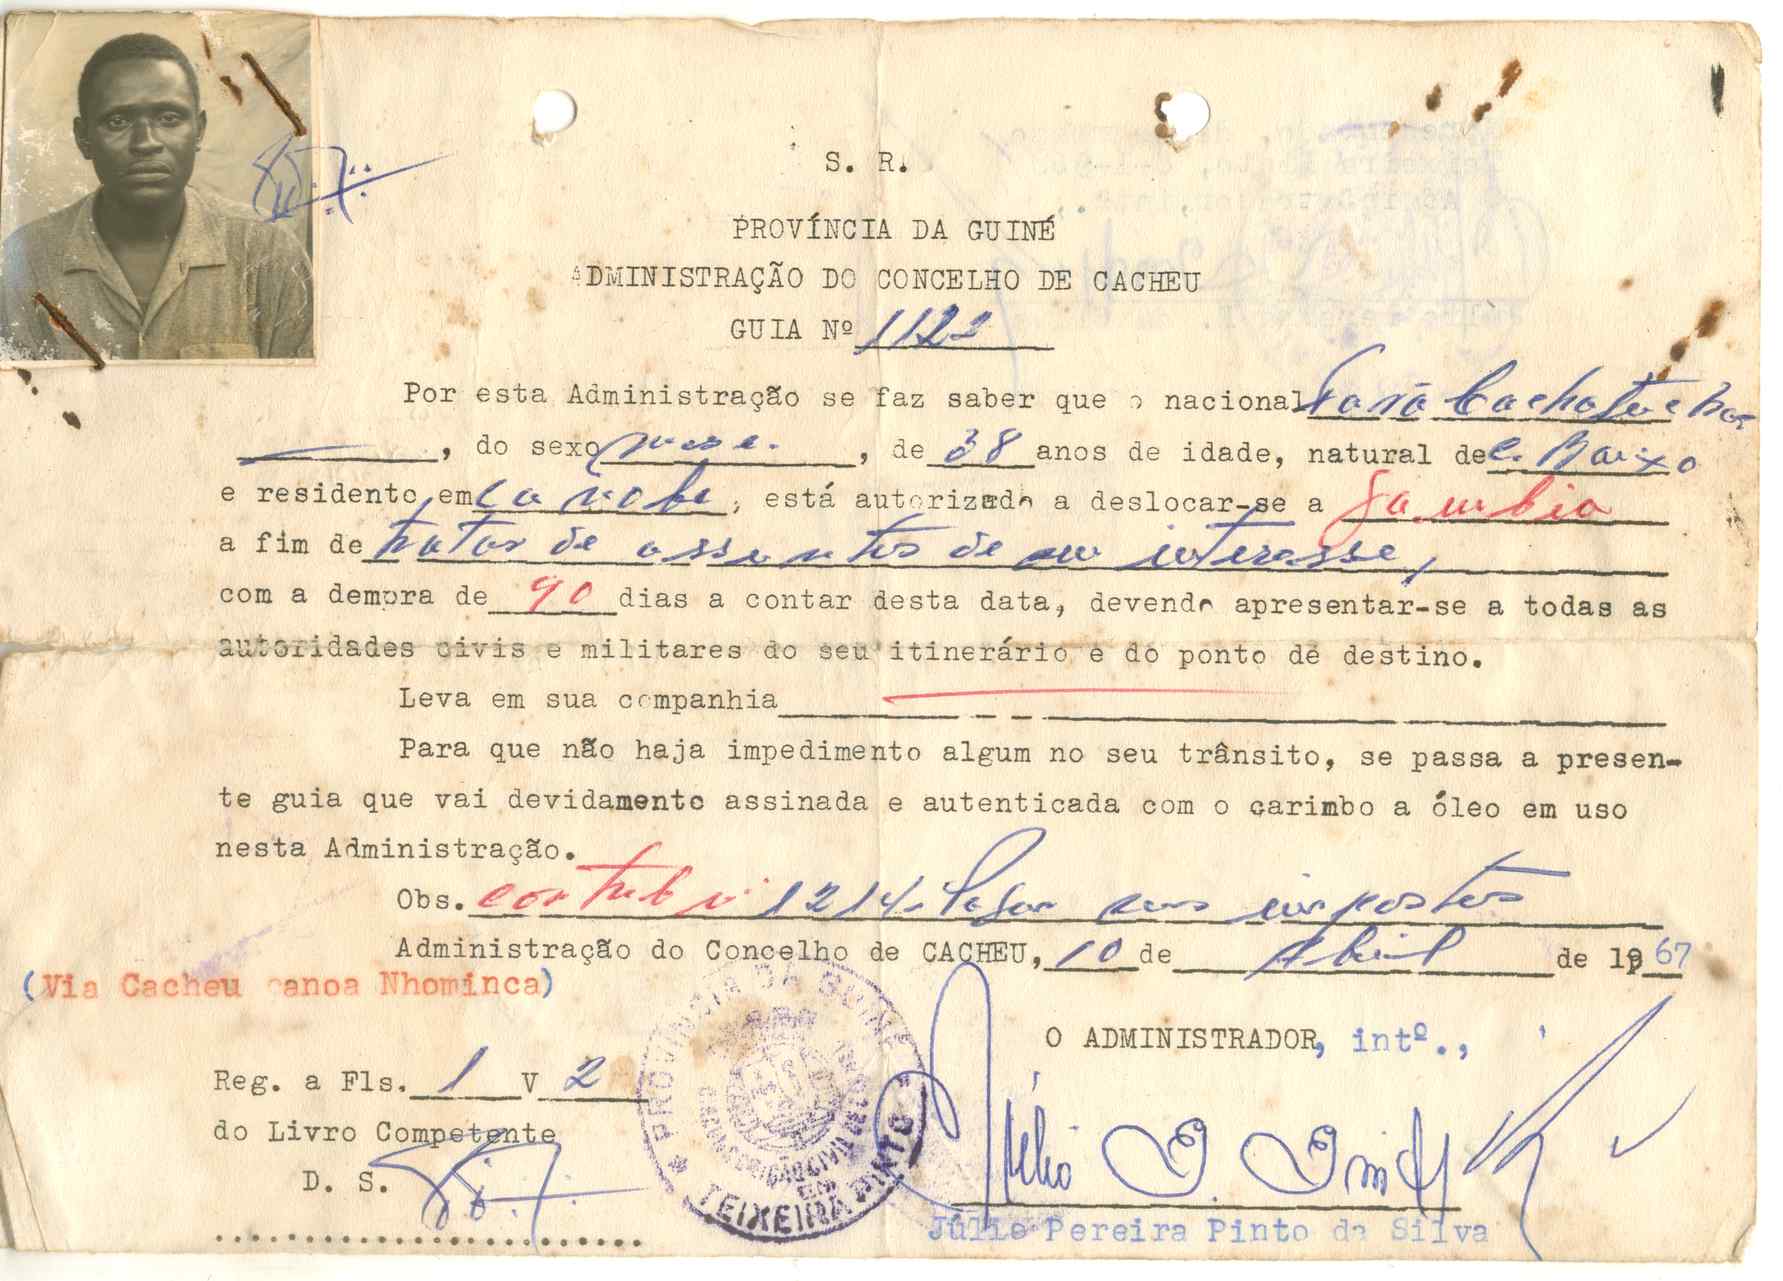 S. R.
PROVÍNCIA DA GUINÉ
ADMINISTRAÇÃO DO CONCELHO DE CACHEU
GUIA Nº 1122
Por esta Administração se faz saber que o nacional
, do sexo masc. , de 38 anos de idade, natural de C. Baixo
e residente em Canobe, está autorizado a deslocar-se a Gambia
a fim de tratar de assuntos de seu interesse,
com a demora de 90 dias a contar desta data, devendo apresentar-se a todas as
autoridades civis e militares do seu itinerário e do ponto de destino.
Leva em sua companhia
Para que não haja impedimento algum no seu trânsito, se passa a presen-
te guia que vai devidamente assinada e autenticada com o carimbo a óleo em uso
nesta Administração.
Obs. contribui 1214. Pagou seus impostos
Administração do Concelho de CACHEU, 10 de Abril de 1967
(Via Cacheu canoa Nhominca)
O ADMINISTRADOR, intº.,
Reg. a Fls. 1 V 2
do Livro Competente
D. S.
PROVINCIA DA GUINÉ
CIVIL
EM
TEIXEIRA PINTO
Júlio Pereira Pinto da Silva